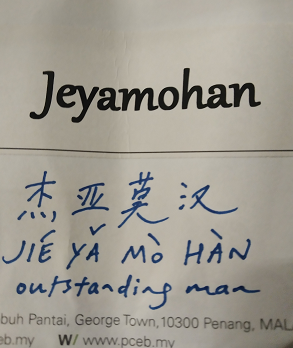 Jeyamohan
杰亚莫汉
JIÉ YǍ MÒ HÀN
outstanding man
buh Pantai, George Town, 10300 Penang, MALA
eb.my W/ www.pceb.my